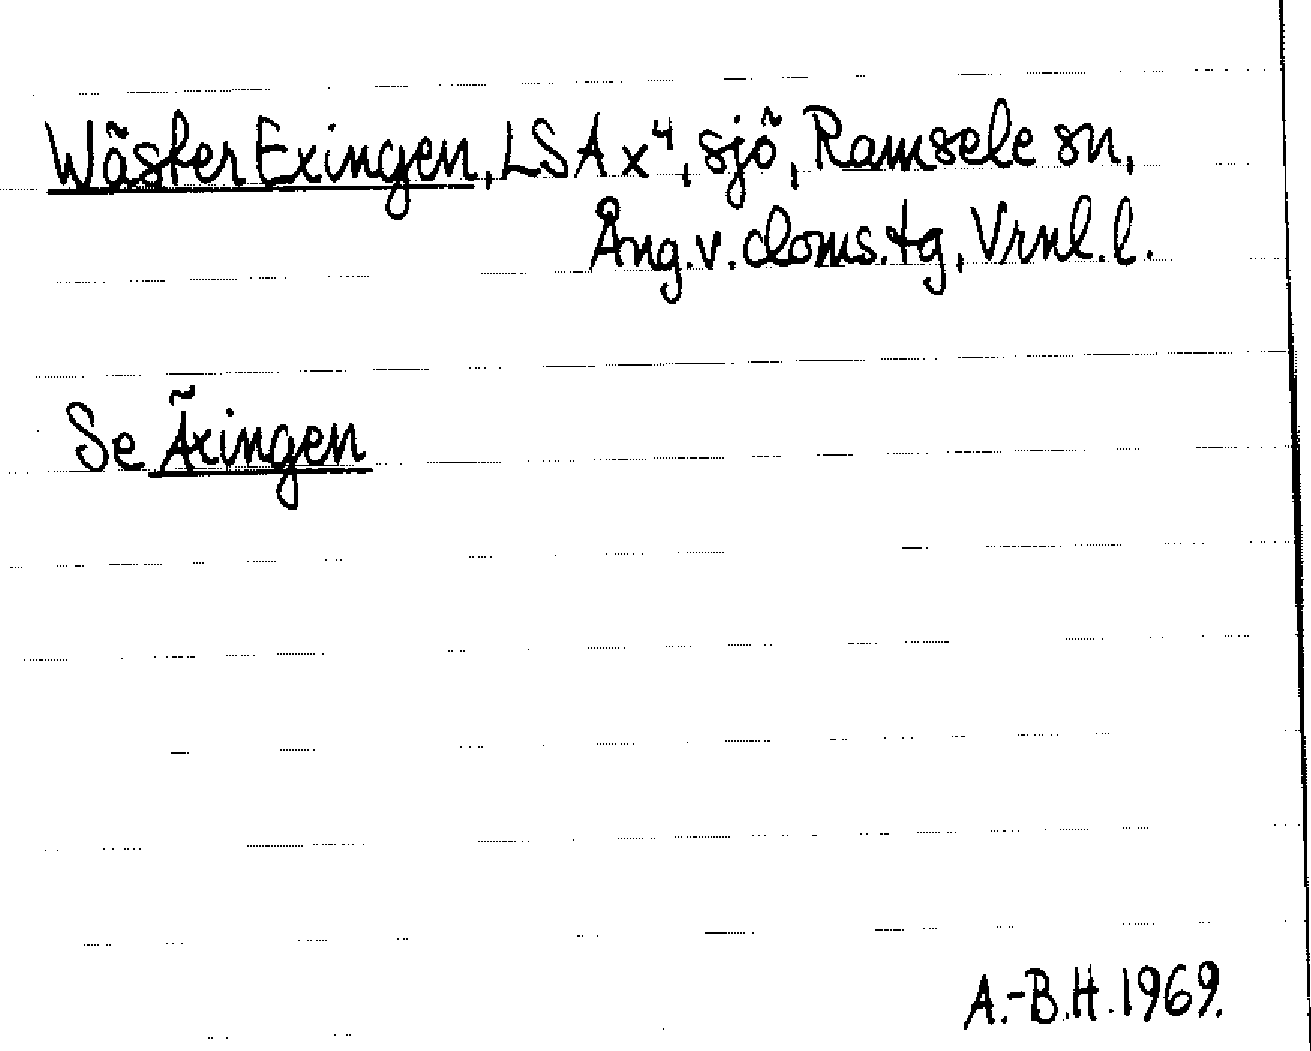 Wäster Exingen, LSA x⁴, sjö, Ramsele sn,
Ång.v. doms.tg, Vrnl.l.
Se Äxingen
A.-B.H. 1969.